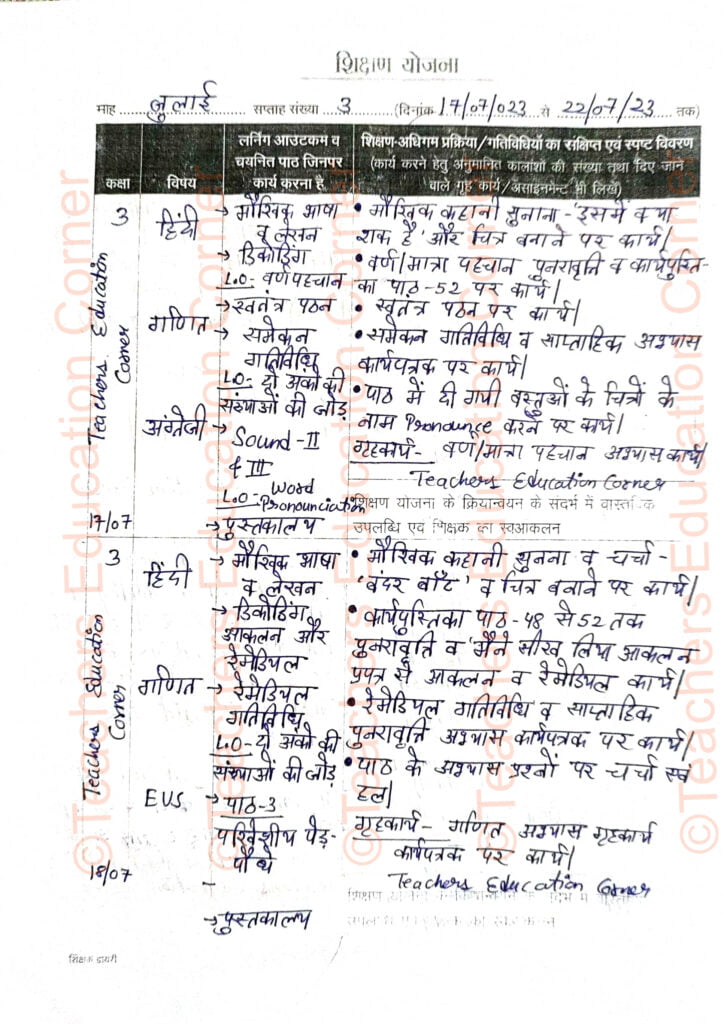 शिक्षण योजना
माह जुलाई सप्ताह संख्या 3 (दिनांक 17/07/023 से 22/07/23 तक)
कक्षा
विषय
लर्निंग आउटकम व
चयनित पाठ जिनपर
कार्य करना है
शिक्षण-अधिगम प्रक्रिया/गतिविधियों का संक्षिप्त एवं स्पष्ट विवरण
(कार्य करने हेतु अनुमानित कालांशों की संख्या तथा दिए जाने
वाले गृह कार्य/असाइनमेन्ट भी लिखें)
3
Teachers Education
Corner
17/07
हिंदी
गणित
अंग्रेजी
→ मौखिक भाषा
व लेखन
→ डिकोडिंग
L.O- वर्ण पहचान
→ स्वतंत्र पठन
→ समेकन
गतिविधि
L.O- दो अंकों की
संख्याओं की जोड़
→ Sound-II
& III
L.O- Word
Pronounciation
→ पुस्तकालय
• मौखिक कहानी सुनाना-'इसमें क्या
शक है' और चित्र बनाने पर कार्य।
• वर्ण/मात्रा पहचान पुनरावृत्ति व कार्यपुस्ति-
का पाठ-52 पर कार्य।
• स्वतंत्र पठन पर कार्य।
• समेकन गतिविधि व साप्ताहिक अभ्यास
कार्यपत्रक पर कार्य।
• पाठ में दी गयी वस्तुओं के चित्रों के
नाम Pronounce करने पर कार्य।
गृहकार्य- वर्ण/मात्रा पहचान अभ्यास कार्य।
Teachers Education Corner
शिक्षण योजना के क्रियान्वयन के संदर्भ में वास्तविक
उपलब्धि एवं शिक्षक का स्वआकलन
3
Teachers Education
Corner
18/07
हिंदी
गणित
EVS
→ मौखिक भाषा
व लेखन
→ डिकोडिंग
आकलन और
रेमेडियल
→ रेमेडियल
गतिविधि
L.O- दो अंको की
संख्याओं की जोड़
→ पाठ-3
परिवेशीय पेड़-
पौधे
-
→ पुस्तकालय
• मौखिक कहानी सुनना व चर्चा -
'बंदर बाँट' व चित्र बनाने पर कार्य।
• कार्यपुस्तिका पाठ-48 से 52 तक
पुनरावृत्ति व 'मैंने सीख लिया' आकलन
प्रपत्र से आकलन व रेमेडियल कार्य।
• रेमेडियल गतिविधि व साप्ताहिक
पुनरावृत्ति अभ्यास कार्यपत्रक पर कार्य।
• पाठ के अभ्यास प्रश्नों पर चर्चा एवं
हल।
गृहकार्य- गणित अभ्यास गृहकार्य
कार्यपत्रक पर कार्य।
Teachers Education Corner
शिक्षक डायरी
©Teachers Education Corner
©Teachers Education Corner
©Teachers Education Corner
©Teachers Education Corner